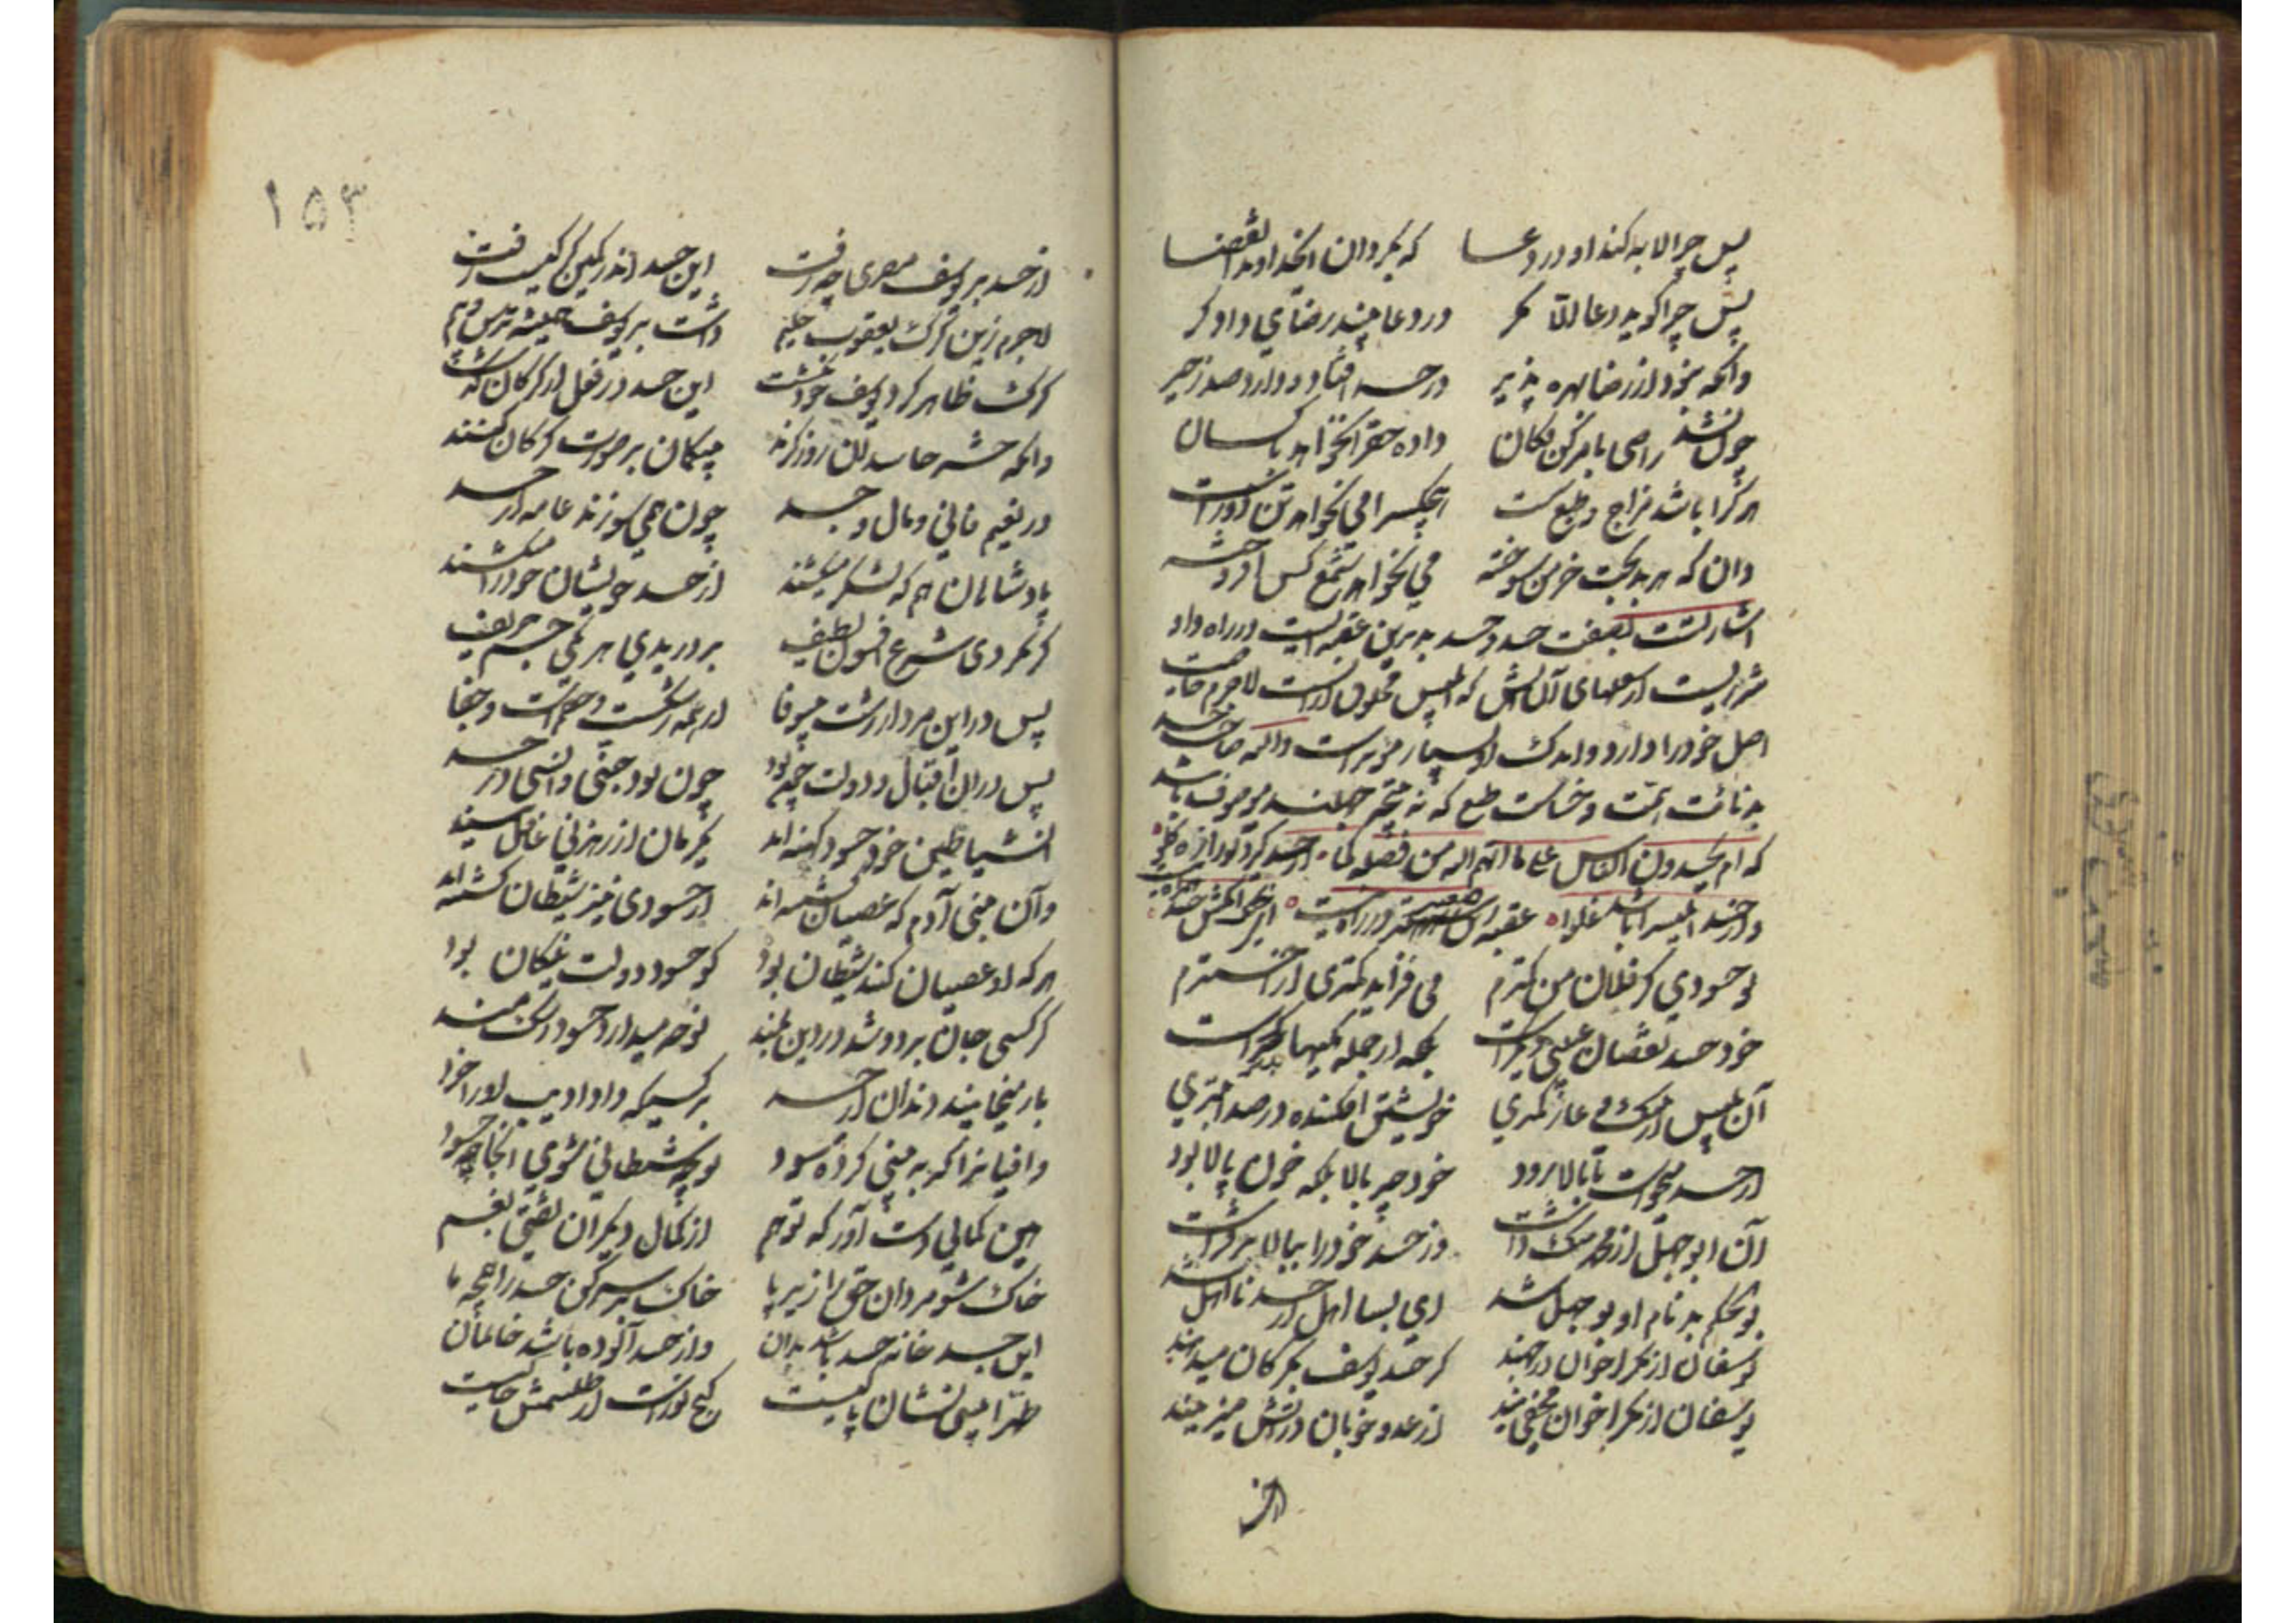 پس چرا لابه کند او در دعا که بگردان ایخداوند این قضا
پس چرا گوید دعا الا مگر در دعا بیند رضای دادگر
وانکه نبود از رضا بهره پذیر در حسد افتاده دارد صد زحیر
چون نشد راضی بامر کن فکان داده حق را نخواهد با کسان
هر کرا باشد مزاج و طبع سست هیچکس را می نخواهد تن درست
زان که هر بدبخت خرمن سوخته می نخواهد شمع کس افروخته
اشارتست بصفت حسد و حسد بدترین عقبه ایست در راه و او
شرریست از شعلهای آن آتش که ابلیس مخلوق از انست لاجرم خاصیت
اصل خود را دارد و اندک او بسیار مضر است و انکه صاحب حسد
بدنائت همت و خساست طبع که نتیجه جهلند موصوف باشد
که ام یحسدون الناس علی ما اتهم الله من فضله
ور حسد ابلیس را باشد غلوا عقبه زین صعبتر در راه نیست ای خنک آنکش حسد همراه نیست
تو حسودی کز فلان من کمترم می فزاید کمتری در اخترم
خود حسد نقصان و عیبی دیگر است بلکه از جمله کمیها بدتر است
آن بلیس از ننگ و عار کمتری خویشتن افکنده در صد ابتری
از حسد میخواست تا بالا رود خود چه بالا بلکه خون پالا بود
آن ابوجهل از محمد ننگ داشت وز حسد خود را ببالا می فراشت
بوالحکم بد نام او بوجهل شد ای بسا اهل از حسد نااهل شد
یوسفان از مکر اخوان در چهند کز حسد یوسف بگرگان میدهند
یوسفان از مکر اخوان مخفی اند از عدو خوبان در آتش میزیند
از حسد
۱۵۳
از حسد بر یوسف مصری چه رفت این حسد اندر کمین گرگیست زفت
لاجرم زین گرگ یعقوب حلیم داشت بر یوسف همیشه ترس و بیم
گرگ ظاهر گرد یوسف خود نگشت این حسد در فعل از گرگان گذشت
زانکه حشر حاسدان روز گزند بیگمان بر صورت گرگان کنند
در نعیم فانی و مال و جسد چون همی سوزند عامه از حسد
پادشاهان هم که لشکر میکشند از حسد خویشان خود را میکشند
گر نکردی شرع افسون لطیف بر دریدی هر یکی جسم حریف
پس در این مردار زشت بیوفا این همه رشکست و خصمست و جفا
پس دران اقبال و دولت چون بود چون بود جنی و انسی در حسد
آن شیاطین خود حسود کهنه اند یکزمان از رهزنی غافل نیند
وآن بنی آدم که عصیان کشته اند از حسودی نیز شیطان گشته اند
هر که او عصیان کند شیطان بود کو حسود دولت نیکان بود
گر کسی جان برد و شد در دین بلند نوحه میدارد حسود رشکمند
باز میخایند دندان از حسد بر کسیکه داد ادیب او را خرد
وافیانرا که به بینی کرده سود تو چه شیطانی شوی آنجا حسود
هین کمالی دست آور که تو هم از کمال دیگران نفتی بغم
خاک شو مردان حق را زیر پا خاک بر سر کن حسد را همچو ما
این جسد خانه حسد باشد بدان وز حسد آلوده باشد خاندان
طهرا بیتی نشان پاکیست گنج نورست ار طلسمش خاکیست